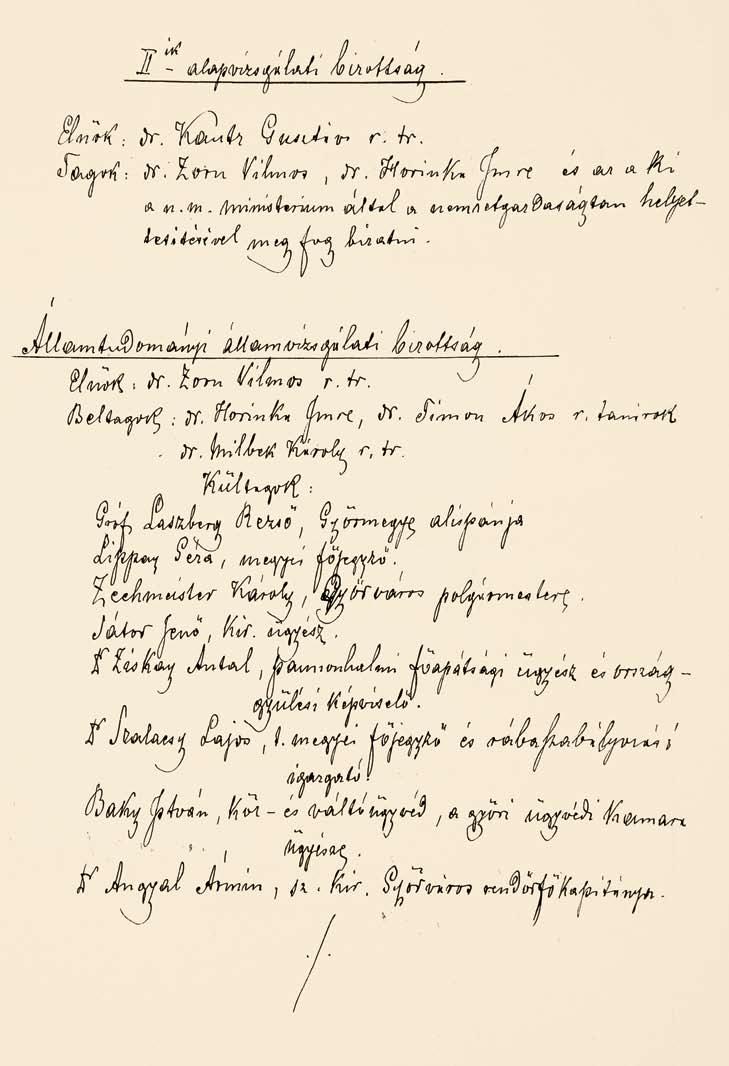 II ik - alapvizsgálati bizottság.
Elnök: dr. Kautz Gusztáv r. tr.
Tagok: dr. Zorn Vilmos, dr. Horinka Imre és az a ki
a n. m. ministerium által a nemzetgazdaságtan helyet-
tesítésével meg fog bizatni.
Államtudományi államvizsgálati bizottság.
Elnök: dr. Zorn Vilmos r. tr.
Beltagok: dr. Horinka Imre, dr. Timon Ákos r. tanárok
dr. Milbek Károly r. tr.
Kültagok:
Gróf Laszberg Rezső, Győrmegye alispánja
Lippay Géza, megyei főjegyző.
Zechmeister Károly, Győrváros polgármestere.
Sátor Jenő, kir. ügyész.
Dr Ziskay Antal, pannonhalmi főapátsági ügyész és ország-
gyülési képviselő.
Dr Szalacsy Lajos, t. megyei főjegyző és rábaszabályozási
igazgató.
Baky István, köz- és váltóügyvéd, a győri ügyvédi kamara
ügyésze.
Dr Angyal Ármin, sz. kir. Győrváros rendőrfőkapitánya.
./.